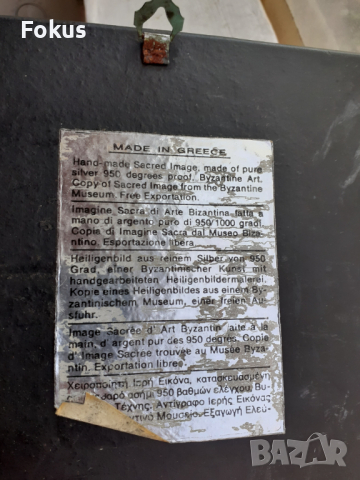 Fokus
MADE IN GREECE
Hand-made Sacred Image, made of pure
silver 950 degrees proof. Byzantine Art.
Copy of Sacred Image from the Byzantine
Museum. Free Exportation.
Imagine Sacra di Arte Bizantina fatta a
mano di argento puro di 950/1000 gradi.
Copia di Imagine Sacra dal Museo Biza-
ntino. Esportazione libera.
Heiligenbild aus reinem Silber von 950
Grad, einer Byzantinischer Kunst mit
handgearbeiteten Heiligenbildermalerei.
Kopie eines Heiligenbildes aus einem By-
zantinischem Museum, einer freien Au-
sfuhr.
Image Sacrée d' Art Byzantin faite à la
main, d' argent pur des 950 degrés. Copie
d' Image Sacree trouvée au Musée Byza-
ntin. Exportation libres.
Χειροποίητη Ιερή Εικόνα, κατασκευασμένη
ασήμι 950 βαθμών ελέγχου, Βυ-
Τέχνης. Αντίγραφο Ιερής Εικόνας
Μουσείο. Εξαγωγή Ελεύ-
BAZAR